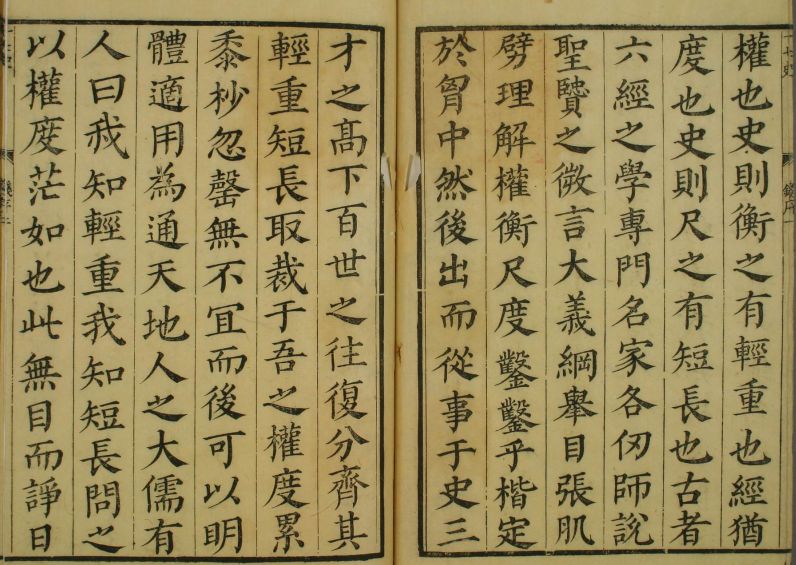 權也史則衡之有輕重也經猶
度也史則尺之有短長也古者
六經之學專門名家各仞師說
聖贒之微言大義綱舉目張肌
劈理解權衡尺度鑿鑿乎楷定
於胷中然後出而從事于史三
才之髙下百世之往復分齊其
輕重短長取裁于吾之權度累
黍杪忽罄無不冝而後可以明
體適用為通天地人之大儒有
人曰我知輕重我知短長問之
以權度茫如也此無目而諍日